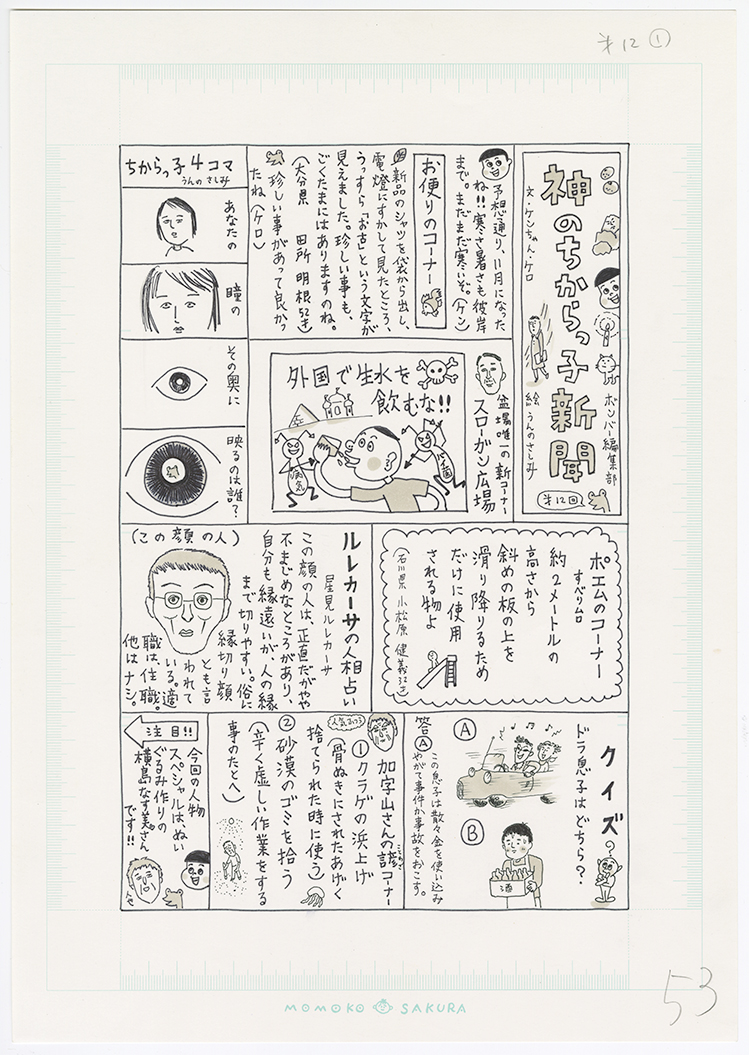 オ12 ①
神のちからっ子新聞
ボンバー編集部
文・ケンちゃん・ケロ
絵 うんのさしみ
オ12回
予想通り、11月になった
ね!!寒さ暑さも彼岸
まで。まだまだ寒いぞ。(ケン)
お便りのコーナー
新品のシャツを袋から出し、
電燈にすかして見たところ、
うっすら「お古」という文字が
見えました。珍しい事も、
ごくたまにはありますのね。
(大分県 田所 明根 52才)
珍しい事があって良かっ
たね(ケロ)
ちからっ子4コマ
うんのさしみ
あなたの
瞳の
その奥に
映るのは誰?
盆場唯一の新コーナー
スローガン広場
外国で生水を
飲むな!!
病気
バイ菌
ポエムのコーナー
すべり台
約2メートルの
高さから
斜めの板の上を
滑り降りるため
だけに使用
される物よ
(石川県 小松原 健義 32才)
ルレカーサの人相占い
星見ルレカーサ
この顔の人は、正直だがやや
不まじめなところがあり、
自分も縁遠いが、人の縁
まで切りやすい。俗に
縁切り顔
とも言
われて
いる。適
職は、住職。
他はナシ。
(この顔の人)
クイズ
ドラ息子はどちら?
Ⓐ
Ⓑ
酒
答Ⓐ
この息子は散々金を使い込み
やがて事件か事故をおこす。
人気みつる
加字山さんの諺コーナー
ことわざ
①クラゲの浜上げ
(骨ぬきにされたあげく
捨てられた時に使う)
②砂漠のゴミを拾う
(辛く虚しい作業をする
事のたとへ)
注目!!
今回の人物
スペシャルはぬい
ぐるみ作りの
横島なす美さん
です!!
53
MOMOKO SAKURA